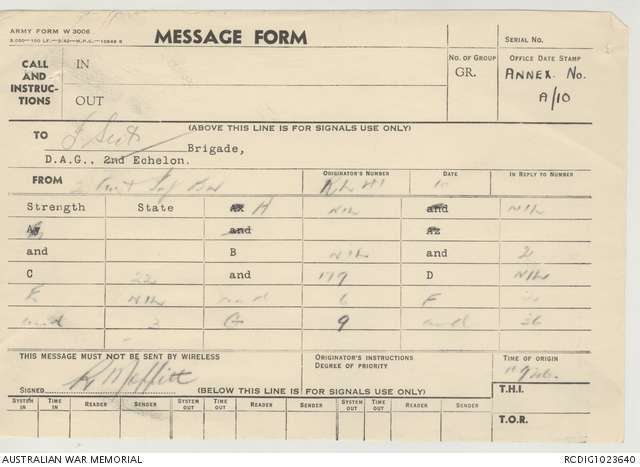 ARMY FORM W 3006
MESSAGE FORM
SERIAL No.
CALL AND INSTRUCTIONS
IN
OUT
No. OF GROUP
GR.
OFFICE DATE STAMP
ANNEX. No.
A/10
(ABOVE THIS LINE IS FOR SIGNALS USE ONLY)
TO Brigade,
D.A.G., 2nd Echelon.
FROM ORIGINATOR'S NUMBER DATE IN REPLY TO NUMBER
Strength State A NIL and NIL
and
and B NIL and 2
C 22 and 179 D NIL
E NIL and 6 F
and 3 G 9 and 36
THIS MESSAGE MUST NOT BE SENT BY WIRELESS
ORIGINATOR'S INSTRUCTIONS
DEGREE OF PRIORITY
TIME OF ORIGIN
Moffitt
SIGNED (BELOW THIS LINE IS FOR SIGNALS USE ONLY)
T.H.I.
SYSTEM IN TIME IN READER SENDER SYSTEM OUT TIME OUT READER SENDER SYSTEM OUT TIME OUT READER SENDER
T.O.R.
AUSTRALIAN WAR MEMORIAL
RCDIG1023640